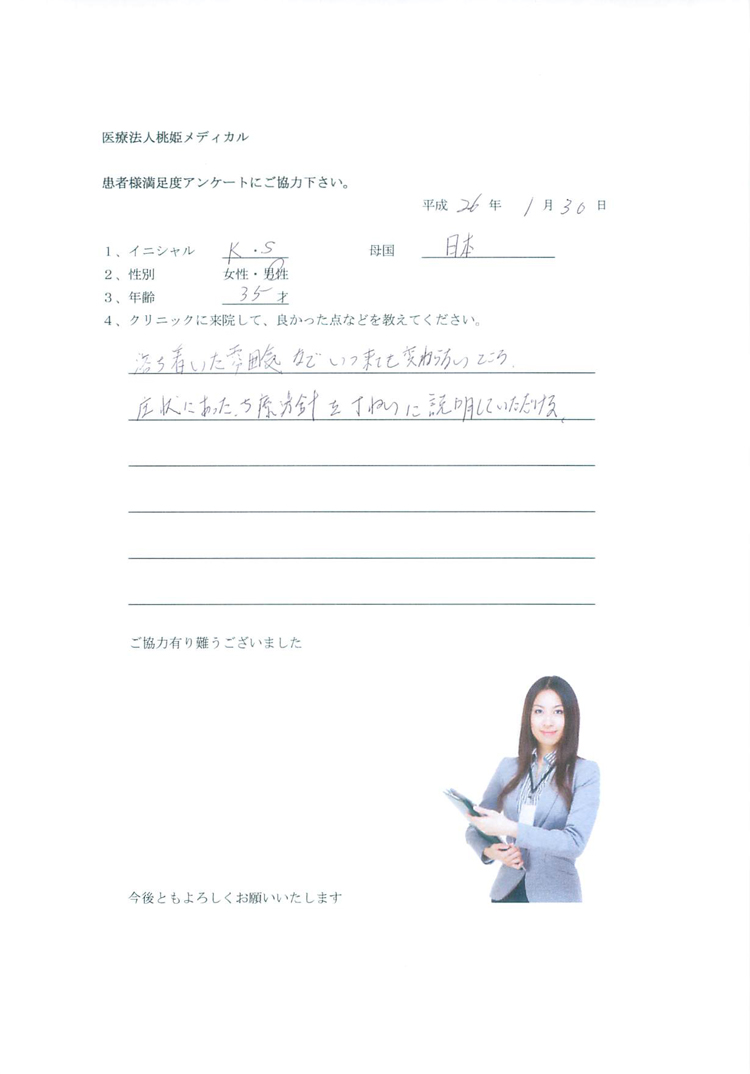 医療法人桃姫メディカル
患者様満足度アンケートにご協力下さい。
平成 26 年 1 月 30 日
1、イニシャル K・S 母国 日本
2、性別 女性・男性
3、年齢 35 才
4、クリニックに来院して、良かった点などを教えてください。
落ち着いた雰囲気などいつ来ても変わらないところ.
症状にあった、ち療方針を丁ねいに説明していただける、
ご協力有り難うございました
今後ともよろしくお願いいたします